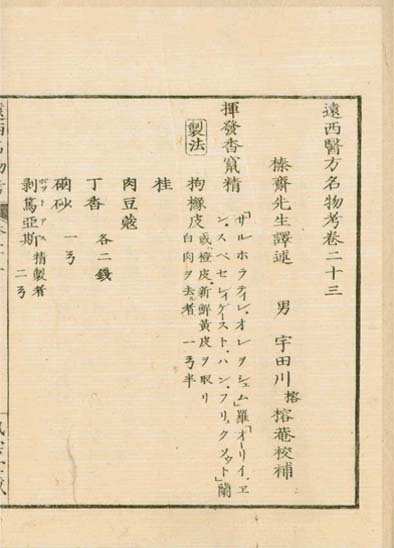 遠西醫方名物考卷二十三
榛齋先生譯述 男 宇田川榕榕菴校補
揮發香竄精 「サルホラティレ・オレヲシュム」羅「オーリイ、ヱ
ン・スペセレイゲースト・ハン・フリュクソウト」蘭
製法
拘櫞皮 或橙皮新鮮黃皮ヲ取リ
白肉ヲ去ル者 一弓半
桂
肉豆蔻
丁香 各二錢
硇砂 一弓
剥篤亞斯 ポットアス 精製者 二弓
遠西名物考